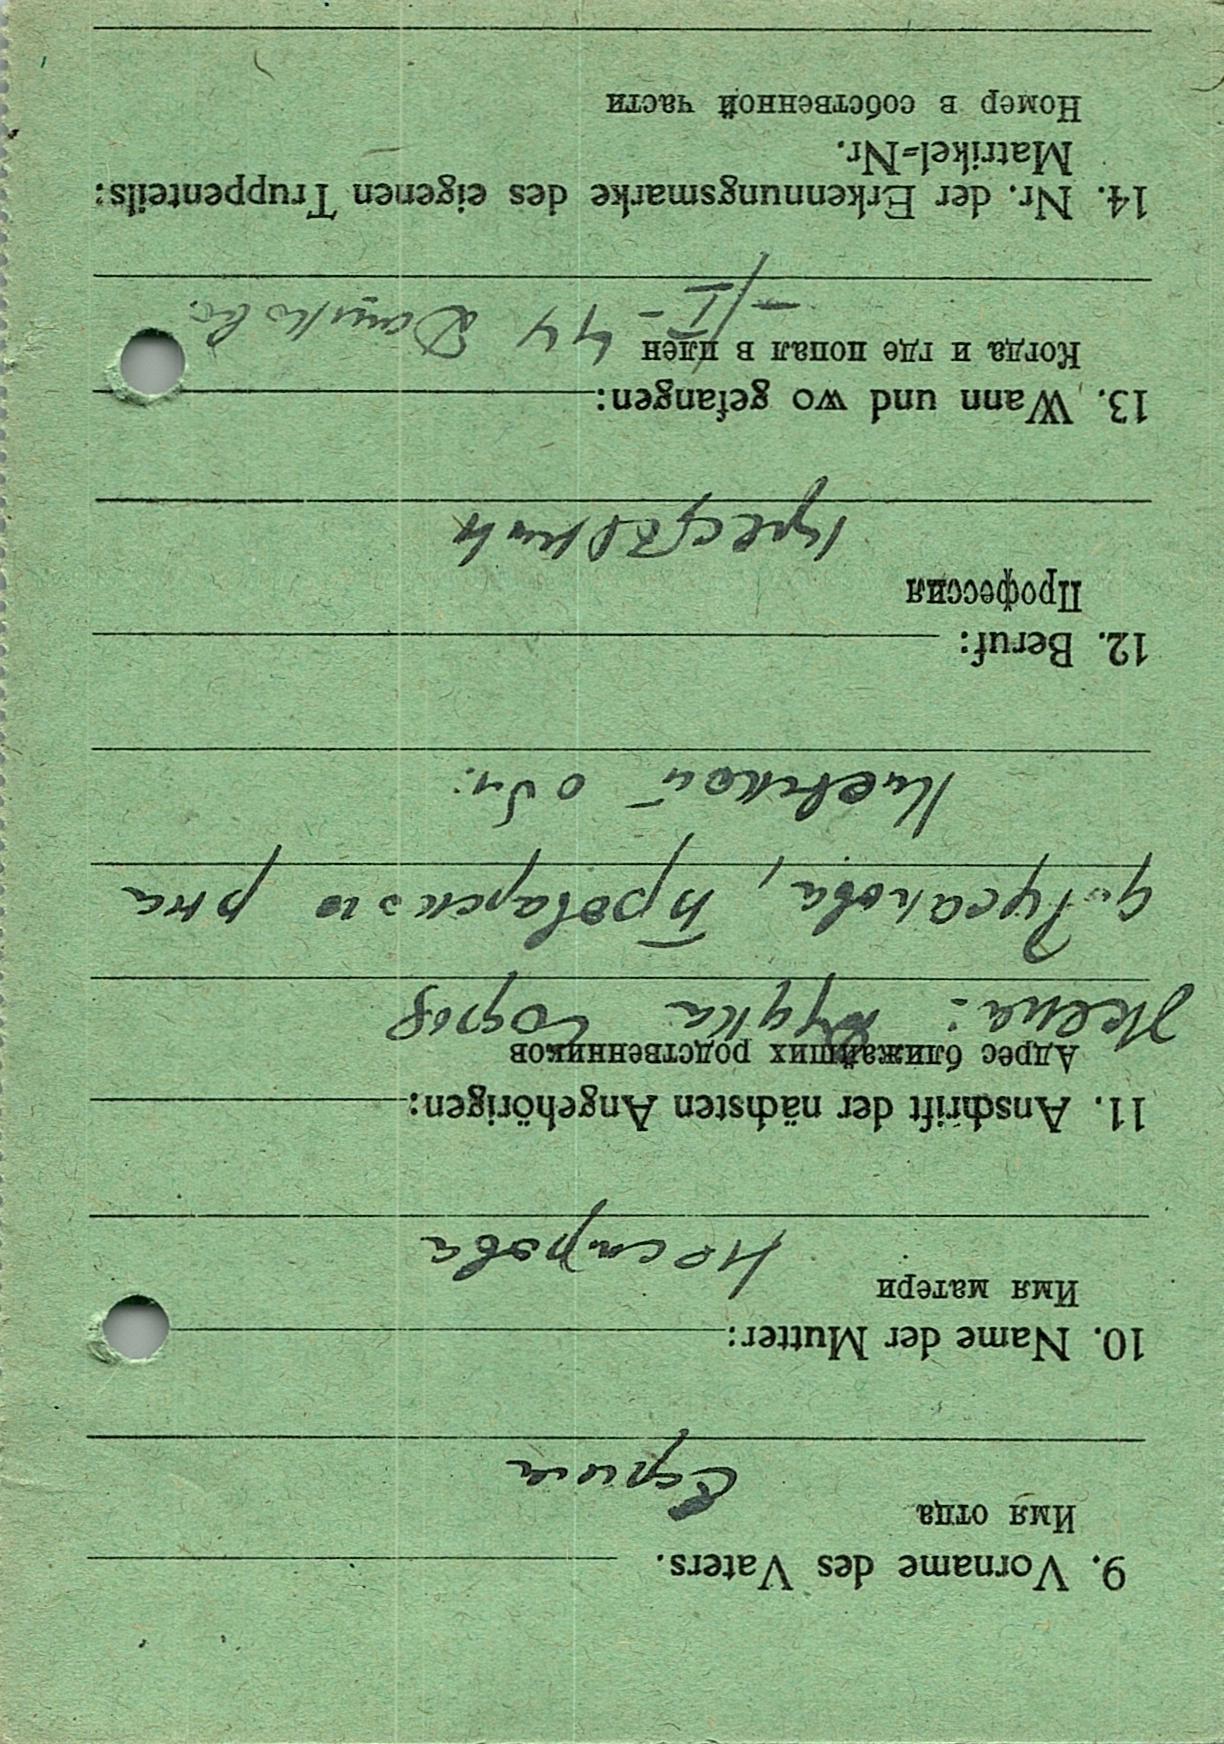 9. Vorname des Vaters.
Имя отца
Ефима
10. Name der Mutter:
Имя матери
Нестерова
11. Anschrift der nächsten Angehörigen:
Адрес ближайших родственников
Жена:
Русанова, Броварского рна
Киевской обл.
12. Beruf:
Профессия
13. Wann und wo gefangen:
Когда и где попал в плен
44
14. Nr. der Erkennungsmarke des eigenen Truppenteils:
Matrikel=Nr.
Номер в собственной части